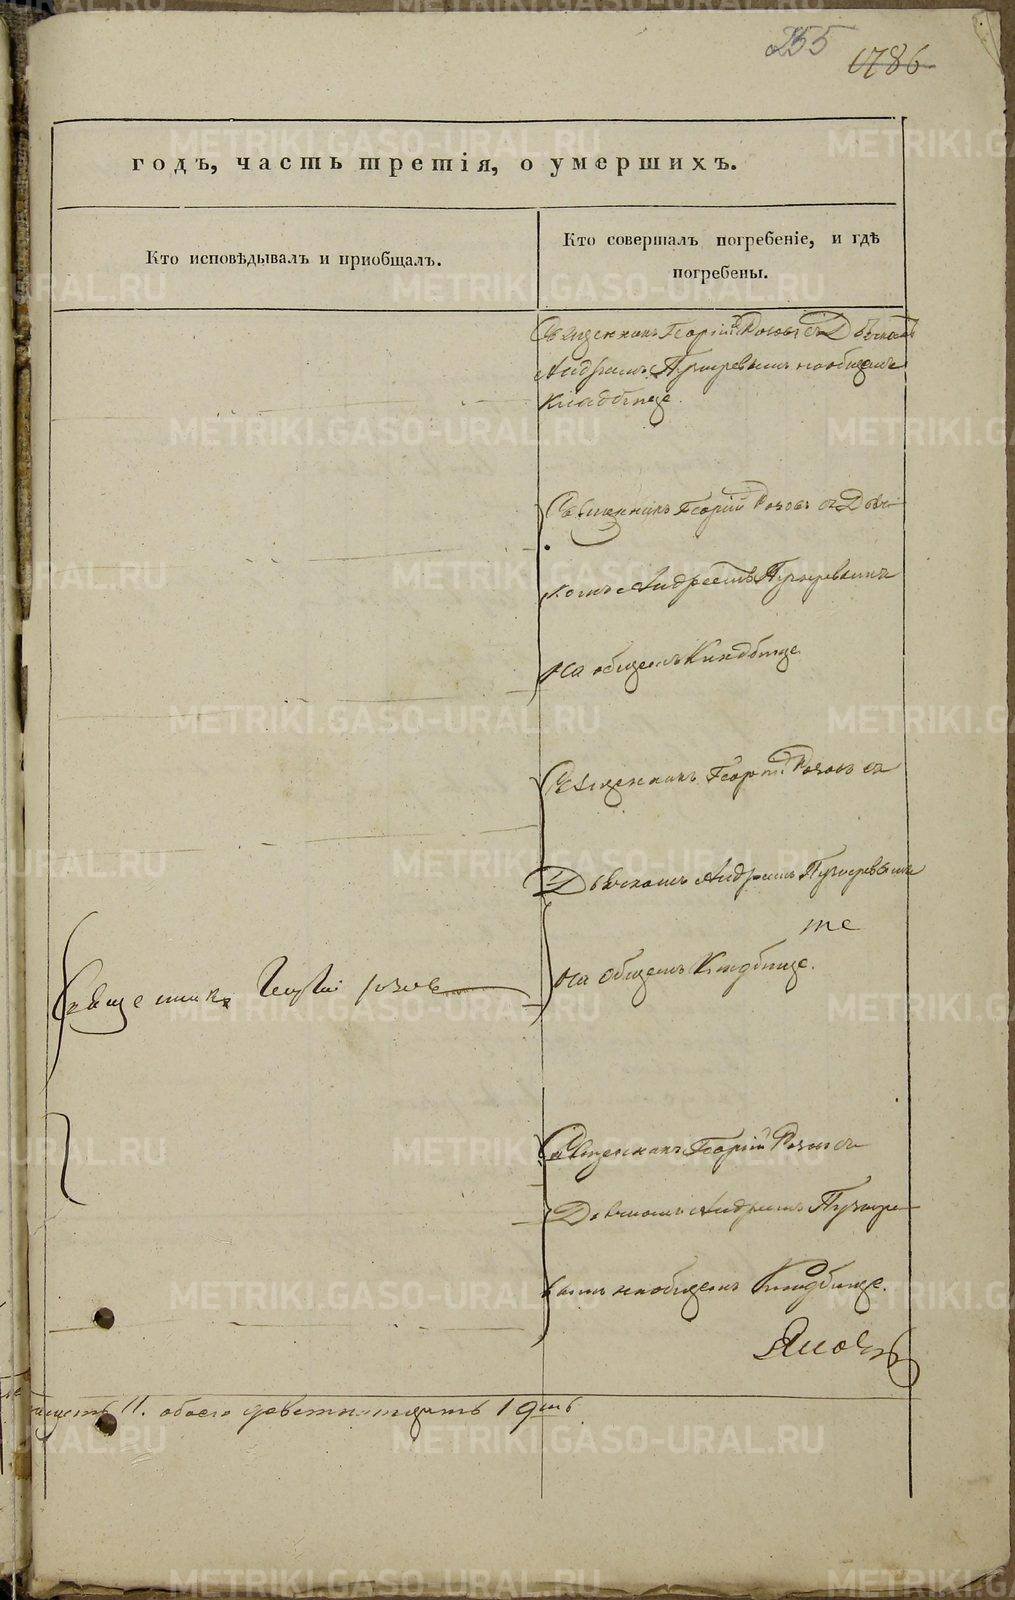 255 1786
годъ, часть третія, о умершихъ.
Кто исповѣдывалъ и приобщалъ.
Кто совершалъ погребеніе, и гдѣ
погребены.
Священникъ Георгій Розовъ съ Дьячкомъ
Андреемъ Пузыревымъ на общемъ
Кладбище.
Священникъ Георгій Розовъ съ Дьяч
комъ Андреемъ Пузыревымъ
На общемъ Кладбище
Священникъ Георгій Розовъ съ
Дьячкомъ Андреемъ Пузыревымъ
те
На общемъ Кладбище.
Священникъ Георгій Розовъ
Священникъ Георгій Розовъ съ
Дьячкомъ Андреемъ Пузыре
вымъ на общемъ Кладбище.
11. обоего девятнатцать 19ть
METRIKI.GASO-URAL.RU